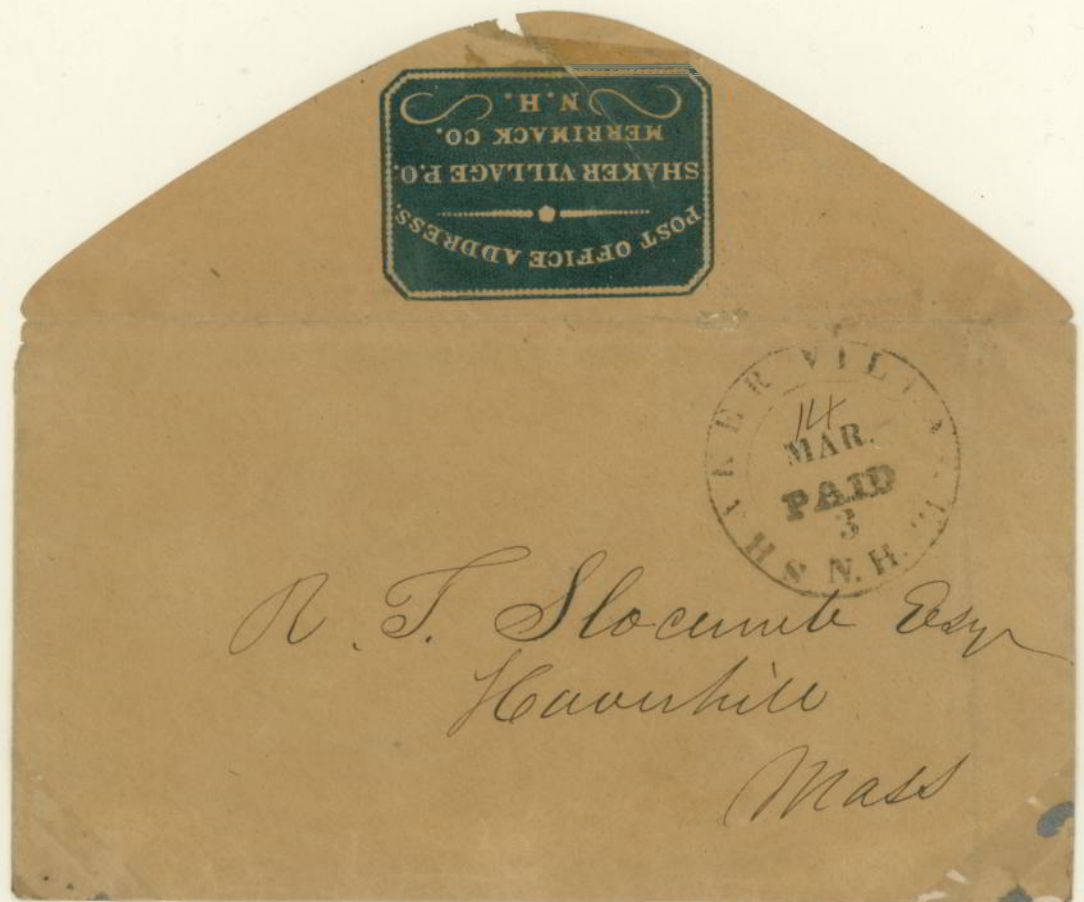 POST OFFICE ADDRESS.
SHAKER VILLAGE P.O.
MERRIMACK CO.
N.H.
SHAKER VILLAGE
14
MAR.
PAID
3
N.H.
R. T. Slocumb Esqr
Haverhill
Mass